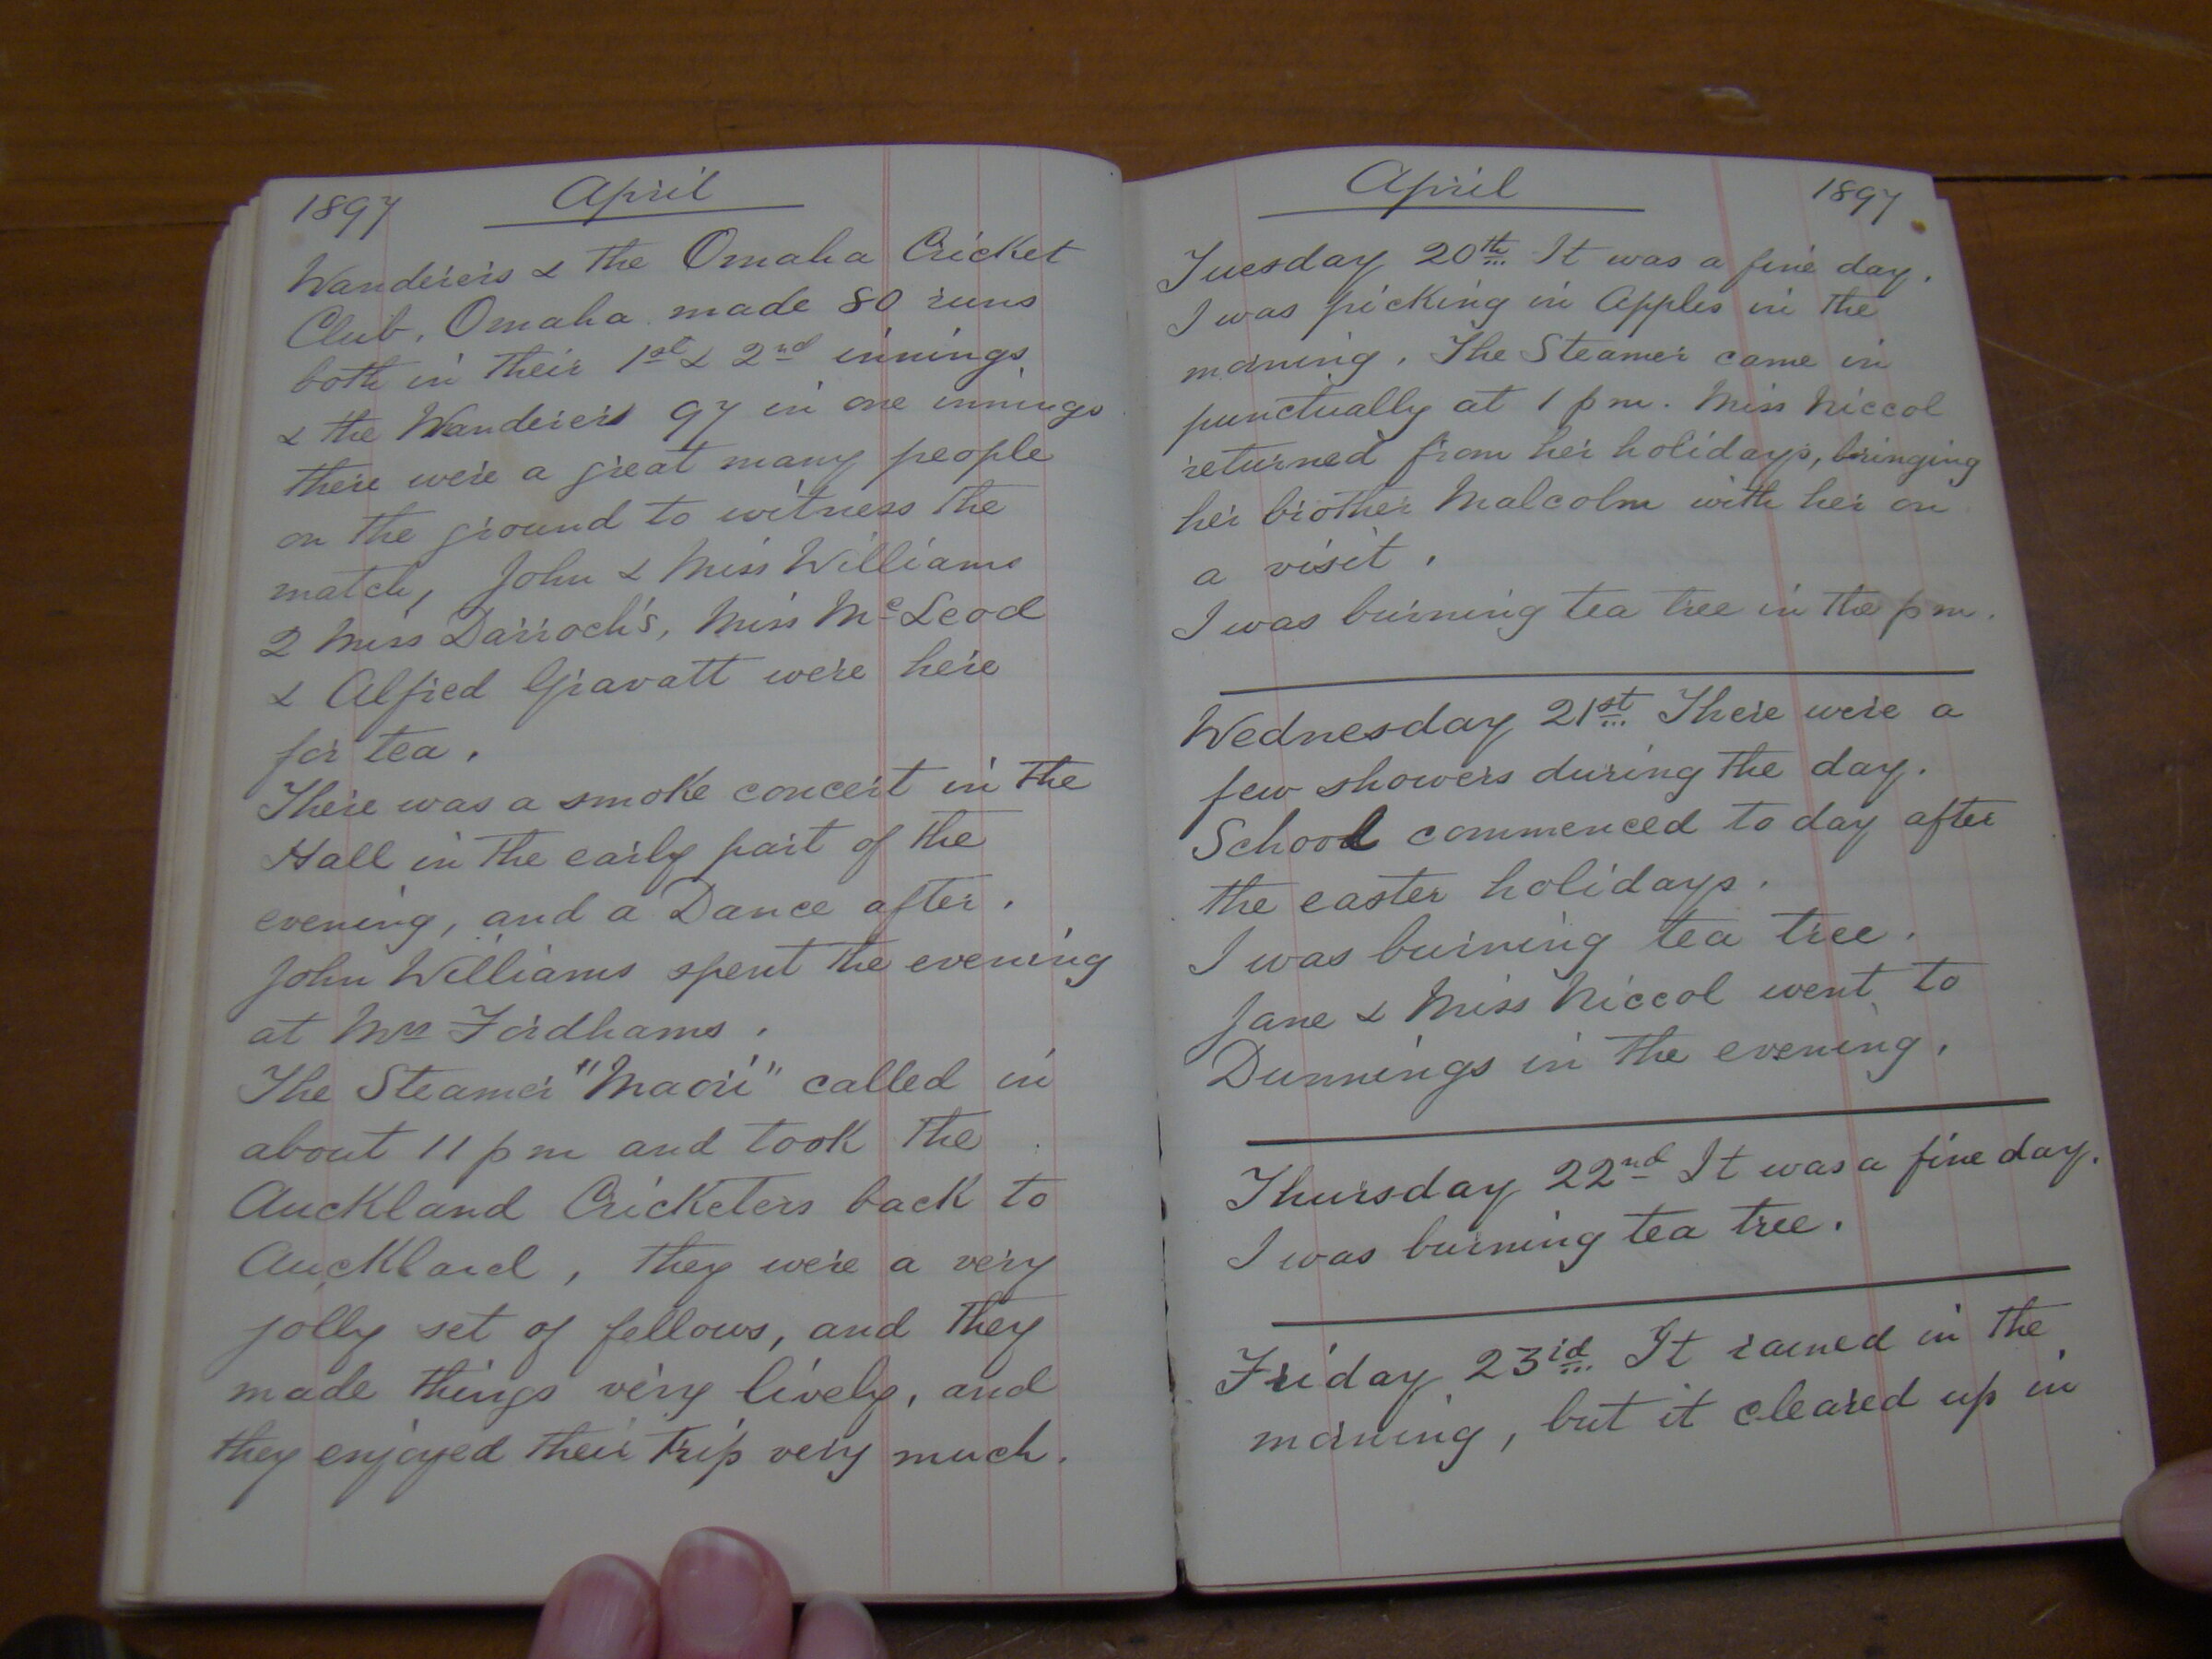 1897 April
Wanderers & the Omaha Cricket
Club, Omaha made 80 runs
both in their 1st & 2nd innings
& the Wanderers 97 in one innings
there were a great many people
on the ground to witness the
match, John & Miss Williams
2 Miss Darroch's, Miss McLeod
& Alfred Gravatt were here
for tea.
There was a smoke concert in the
Hall in the early part of the
evening, and a Dance after.
John Williams spent the evening
at Mrs Fordhams.
The Steamer "Maori" called in
about 11 pm and took the
Auckland Cricketers back to
Auckland, they were a very
jolly set of fellows, and they
made things very lively, and
they enjoyed their trip very much.
April 1897
Tuesday 20th It was a fine day.
I was picking in Apples in the
morning. The Steamer came in
punctually at 1 pm. Miss Niccol
returned from her holidays, bringing
her brother Malcolm with her on
a visit.
I was burning tea tree in the pm.
Wednesday 21st There were a
few showers during the day.
School commenced to day after
the easter holidays.
I was burning tea tree.
Jane & Miss Niccol went to
Dunnings in the evening.
Thursday 22nd It was a fine day.
I was burning tea tree.
Friday 23rd It rained in the
morning, but it cleared up in